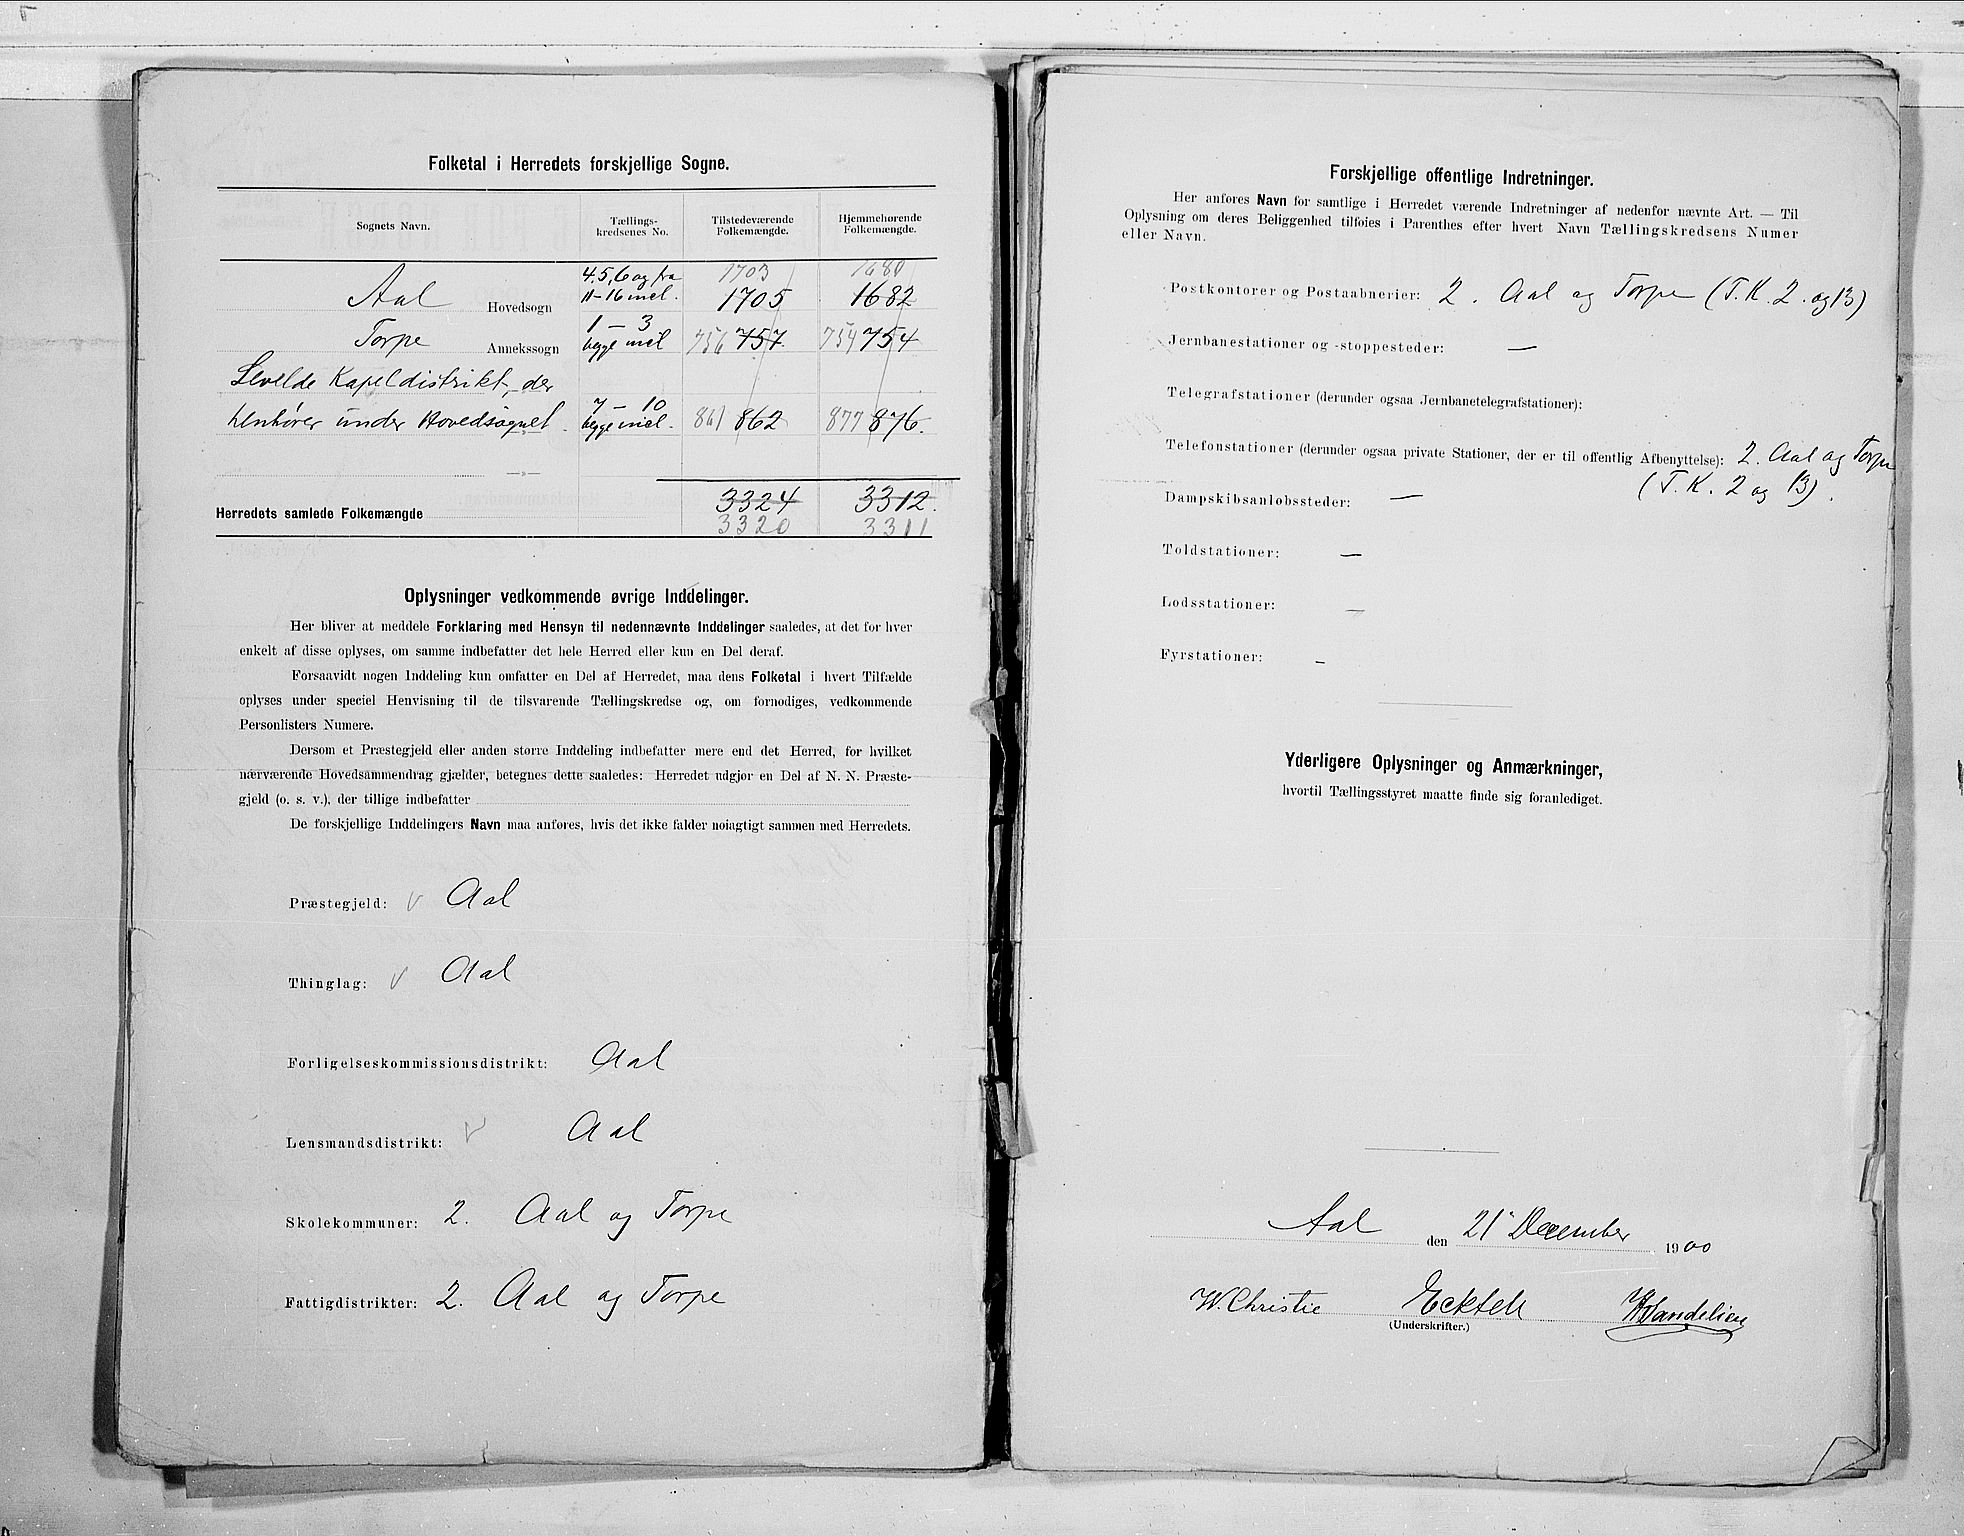 Folketal i Herredets forskjellige Sogne.
Sognets Navn.
Tællings-
kredsenes No.
Tilstedeværende
Folkemængde.
Hjemmehørende
Folkemængde.
4,5,6 og fra 1703 1680
Aal Hovedsogn 11-16 incl. 1705 1682
1 - 3
Torpe Annekssogn begge incl 756 757 754 754
Levelde Kapeldistrikt, der
7 - 10
henhører under Hovedsognet. begge incl. 861 862 877 876.
—»—
3324 3312.
Herredets samlede Folkemængde
3320 3311
Oplysninger vedkommende øvrige Inddelinger.
Her bliver at meddele Forklaring med Hensyn til nedennævnte Inddelinger saaledes, at det for hver
enkelt af disse oplyses, om samme indbefatter det hele Herred eller kun en Del deraf.
Forsaavidt nogen Inddeling kun omfatter en Del af Herredet, maa dens Folketal i hvert Tilfælde
oplyses under speciel Henvisning til de tilsvarende Tællingskredse og, om fornødiges, vedkommende
Personlisters Numere.
Dersom et Præstegjeld eller anden større Inddeling indbefatter mere end det Herred, for hvilket
nærværende Hovedsammendrag gjælder, betegnes dette saaledes: Herredet udgjør en Del af N. N. Præste-
gjeld (o. s. v.), der tillige indbefatter
De forskjellige Inddelingers Navn maa anføres, hvis det ikke falder nøiagtigt sammen med Herredets.
Præstegjeld: v Aal
Thinglag: v Aal
Forligelseskommissionsdistrikt: Aal
Lensmandsdistrikt: v Aal
Skolekommuner: 2. Aal og Torpe
Fattigdistrikter: 2. Aal og Torpe
Forskjellige offentlige Indretninger.
Her anføres Navn for samtlige i Herredet værende Indretninger af nedenfor nævnte Art. — Til
Oplysning om deres Beliggenhed tilføies i Parenthes efter hvert Navn Tællingskredsens Numer
eller Navn.
Postkontorer og Postaabnerier: 2. Aal og Torpe (T.K. 2. og 13)
Jernbanestationer og -stoppesteder: —
Telegrafstationer (derunder ogsaa Jernbanetelegrafstationer):
Telefonstationer (derunder ogsaa private Stationer, der er til offentlig Afbenyttelse): 2. Aal og Torpe
(T.K. 2 og 13).
Dampskibsanløbssteder: —
Toldstationer: —
Lodsstationer: —
Fyrstationer: —
Yderligere Oplysninger og Anmærkninger,
hvortil Tællingsstyret maatte finde sig foranlediget.
Aal den 21 December 1900
W. Christie
(Underskrifter.)